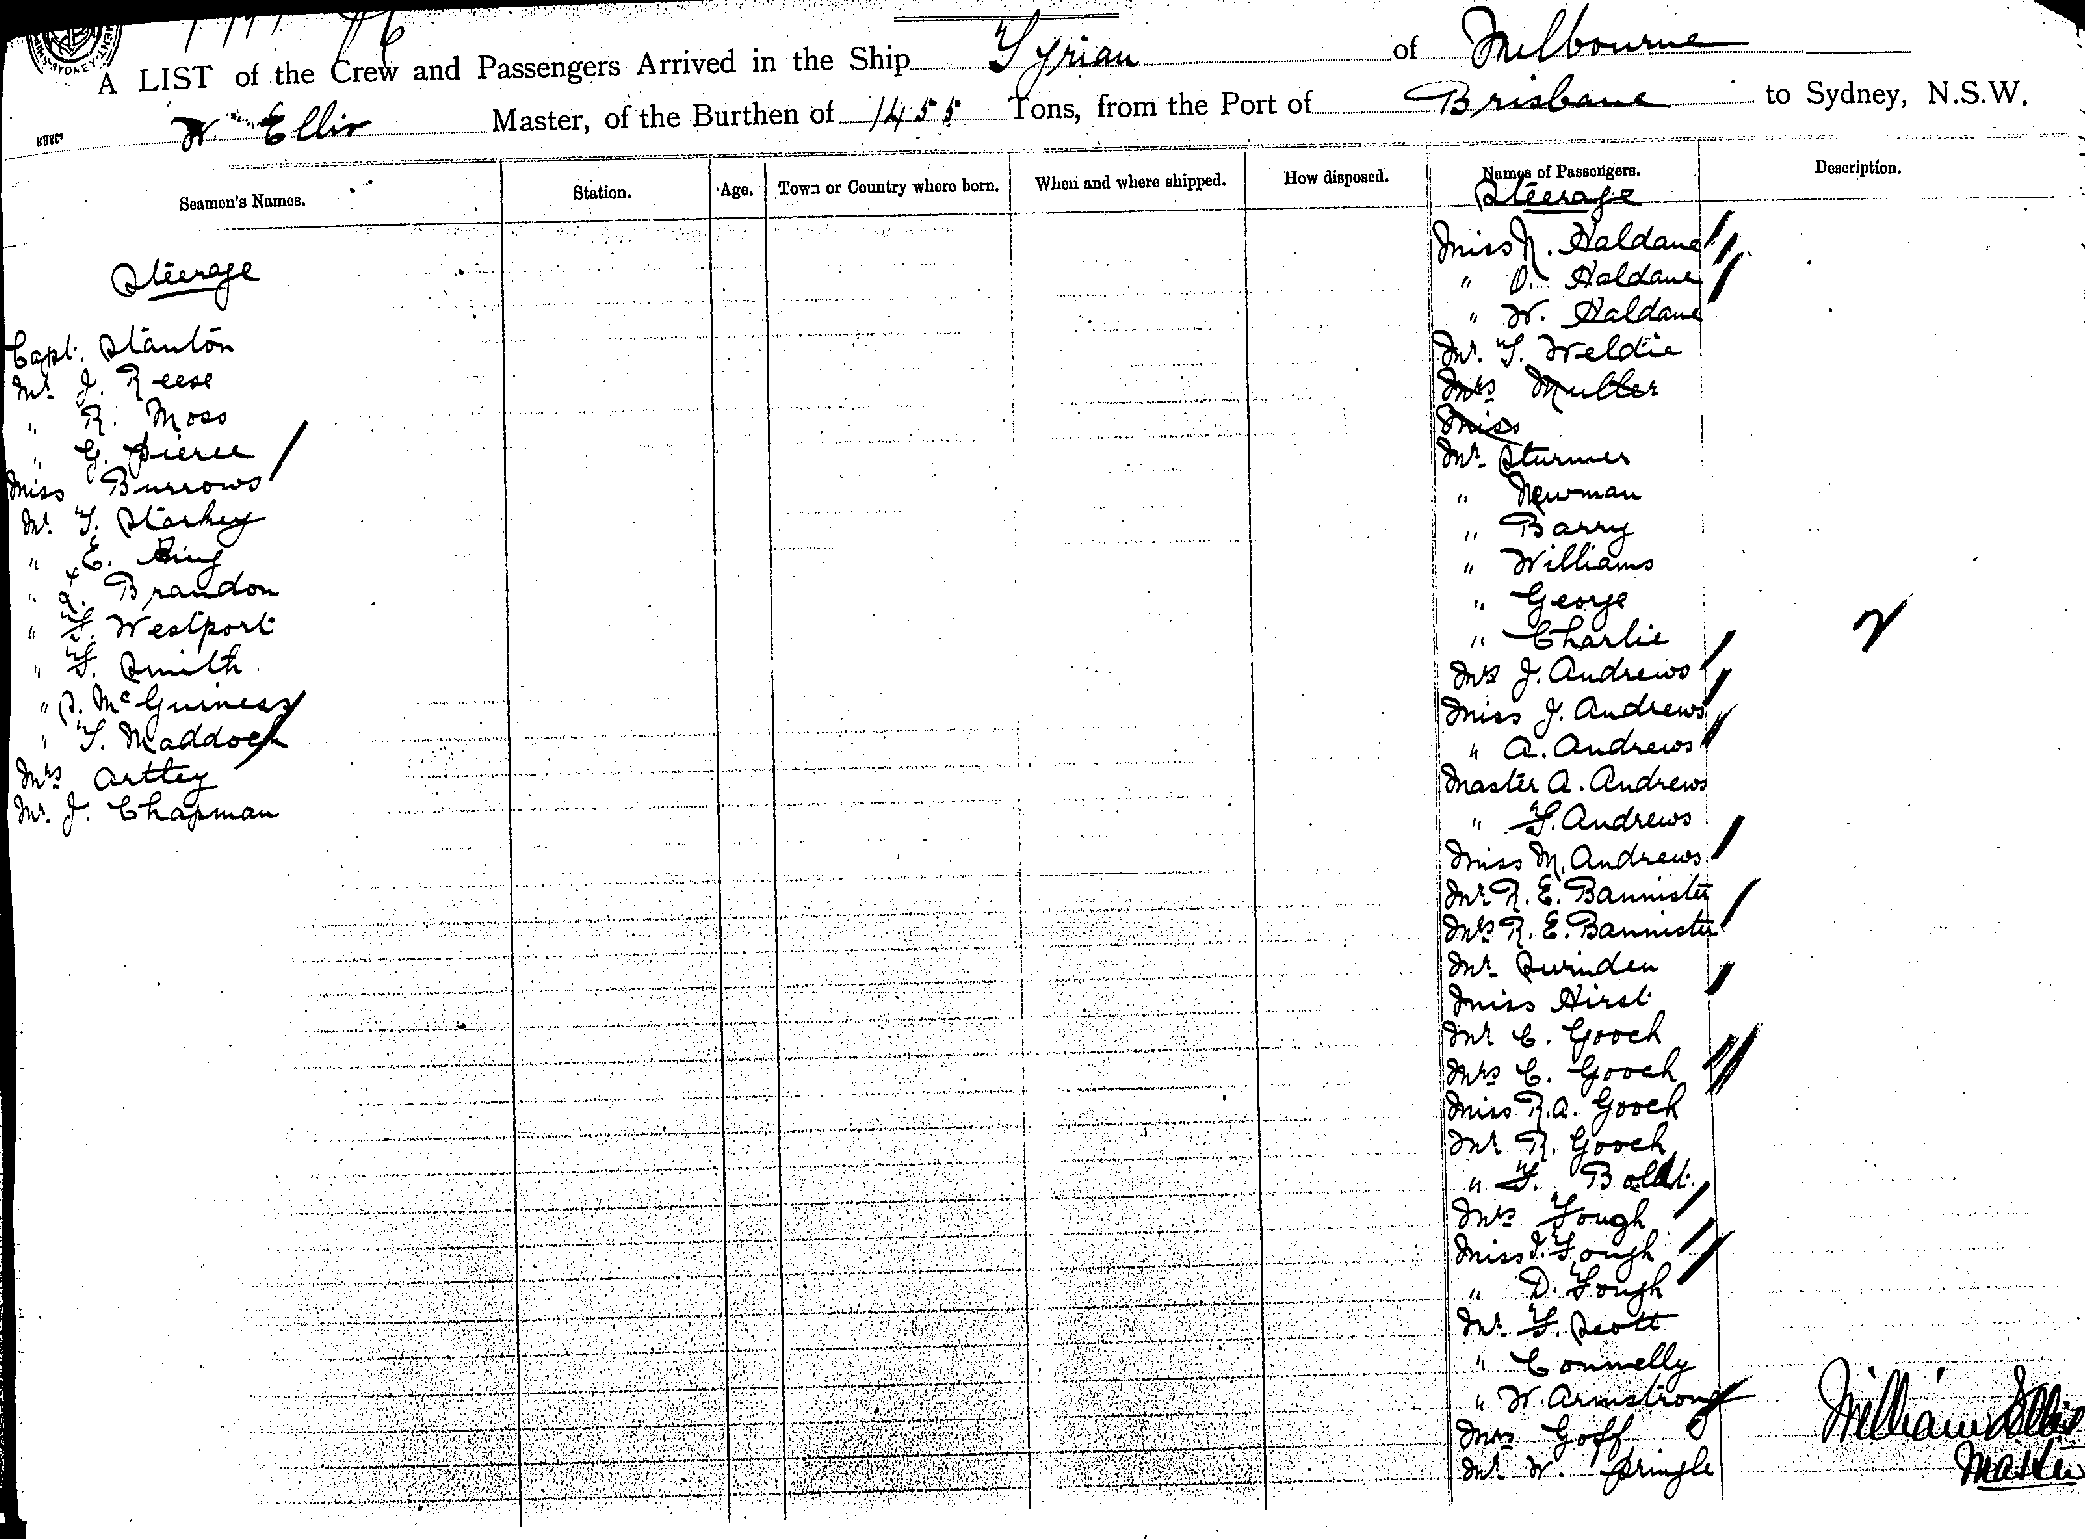 A LIST of the Crew and Passengers Arrived in the Ship Tyrian of Melbourne
W Ellis Master, of the Burthen of 1455 Tons, from the Port of Brisbane to Sydney, N.S.W.
Seamen's Names. Station. Age. Town or Country where born. When and where shipped. How disposed. Names of Passengers. Description.
Steerage
Capt. Stanton
Mr J. Reese
" R. Moss
" G. Pierce
Miss Burrows
Mr T. Starkey
" E. King
" Brandon
" F. Westport
" F. Smith
" S. McGuiness
" T. Maddock
Mrs Artley
Mr. J. Chapman
Steerage
Miss N. Haldane
" O. Haldane
" W. Haldane
Mr. T. Weldie
Mrs Muller
Miss
Mr Sturmer
" Newman
" Barry
" Williams
" George
" Charlie
Mrs J. Andrews
Miss J. Andrews
" A. Andrews
Master A. Andrews
" F. Andrews
Miss M. Andrews
Mr R. E. Bannister
Mrs R. E. Bannister
Mr Swinden
Miss Hirst
Mr C. Gooch
Mrs C. Gooch
Miss R. A. Gooch
Mr R. Gooch
" F. Boldt
Mrs Tough
Miss J. Tough
" D. Tough
Mr F. Scott
" Connelly
" W. Armstrong
Mrs Goff
Mr W. Pringle
William Ellis
Master